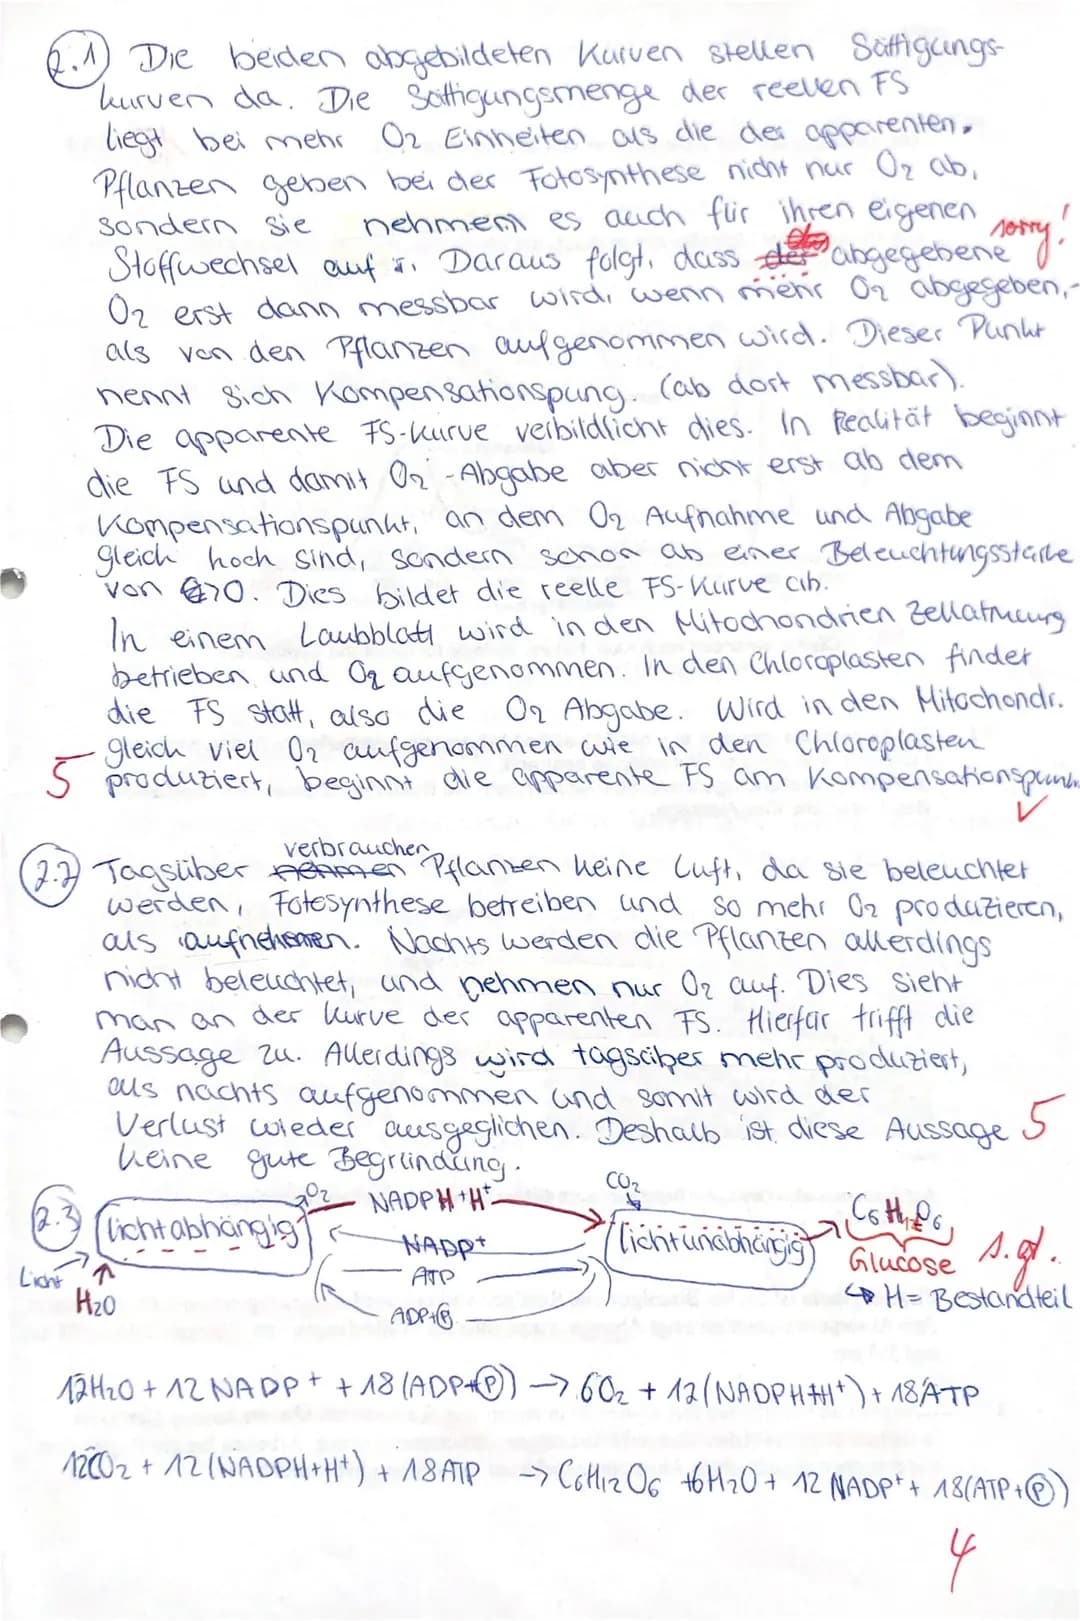 2.1) Die beiden abgebildeten Kurven stellen Sättigungs-
kurven da. Die Sättigungsmenge der reellen FS
liegt bei mehr O2 Einheiten als die der apparenten.
Pflanzen geben bei der Fotosynthese nicht nur O2 ab,
sondern sie nehmen es auch für ihren eigenen
sorry!
Stoffwechsel auf. Daraus folgt, dass der abgegebene
O2 erst dann messbar wird, wenn mehr O2 abgegeben,
als von den Pflanzen aufgenommen wird. Dieser Punkt
nennt sich Kompensationspung (ab dort messbar).
Die apparente FS-Kurve verbildlicht dies. In Realität beginnt
die FS und damit O2-Abgabe aber nicht erst ab dem
Kompensationspunkt, an dem O2 Aufnahme und Abgabe
gleich hoch sind, sondern schon ab einer Beleuchtungsstärke
von >0. Dies bildet die reelle FS-Kurve ab.
In einem Laubblatt wird in den Mitochondrien Zellatmung
betrieben und O2 aufgenommen. In den Chloroplasten findet
die FS statt, also die O2 Abgabe. Wird in den Mitochondr.
gleich viel O2 aufgenommen wie in den Chloroplasten
5 produziert, beginnt die apparente FS am Kompensationspunkt.
✓
verbrauchen
2.2) Tagsüber nehmen Pflanzen keine Luft, da sie beleuchtet
werden, Fotosynthese betreiben und so mehr O2 produzieren,
als aufnehmen. Nachts werden die Pflanzen allerdings
nicht beleuchtet, und nehmen nur O2 auf. Dies sieht
man an der Kurve der apparenten FS. Hierfür trifft die
Aussage zu. Allerdings wird tagsüber mehr produziert,
als nachts aufgenommen und somit wird der
Verlust wieder ausgeglichen. Deshalb ist diese Aussage 5
keine gute Begründung.
2.3) lichtabhängig
O2
NADPH+H+
NADP+
ATP
ADP+P
Licht
H2O
CO2
lichtunabhängig
C6H12O6
Glucose
s.gt.
↳ H = Bestandteil
12H2O + 12 NADP+ + 18(ADP+P) → 6O2 + 12(NADPH+H+) + 18ATP
12CO2 + 12(NADPH+H+) + 18ATP → C6H12O6 +6H2O + 12 NADP+ + 18(ATP+P)
4